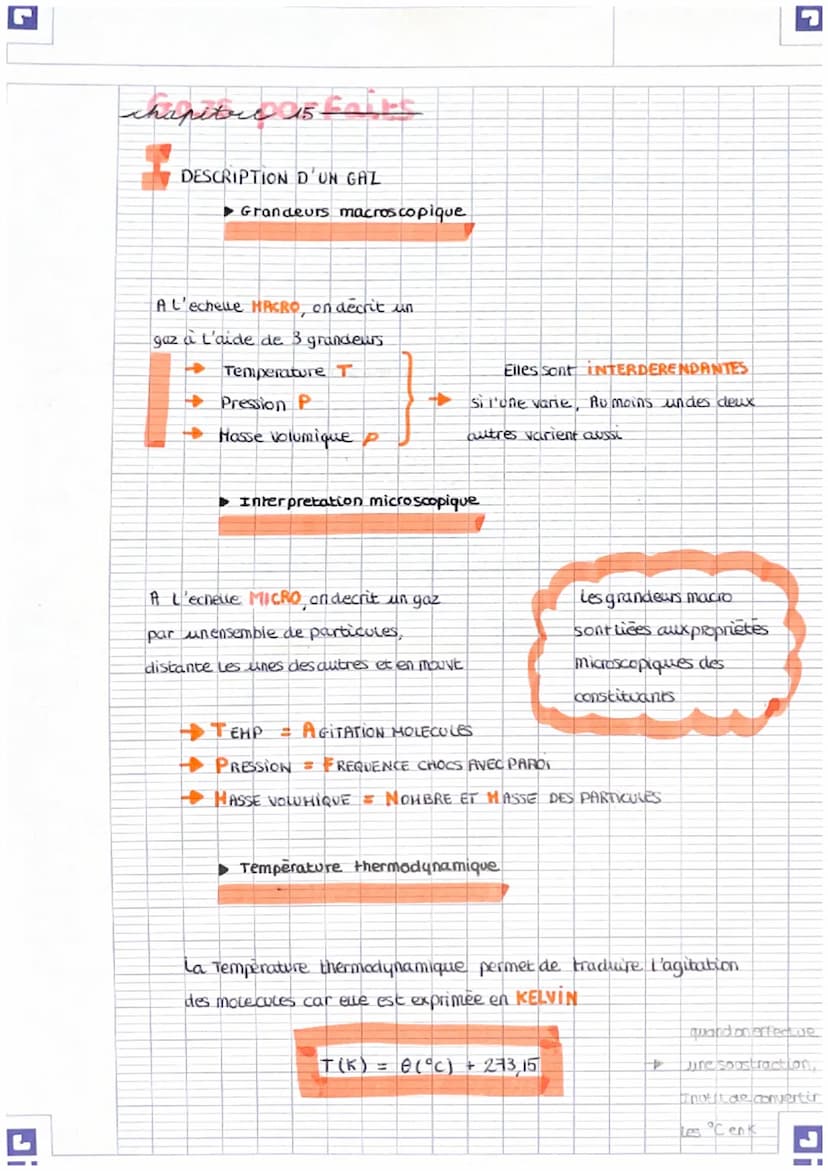 Gazs parfaits
chapitre 15
I DESCRIPTION D'UN GAZ
▸ Grandeurs macroscopique
A L'echelle MACRO, on décrit un
gaz à l'aide de 3 grandeurs
→ Temperature T
→ Pression P
→ Masse volumique ρ
→ Elles sont iNTERDERENDANTES
si l'une varie, Au moins un des deux
autres varient aussi
▸ Interpretation microscopique
A L'echelle MICRO, on decrit un gaz
par un ensemble de particules,
distante les unes des autres et en mouvt
Les grandeurs macro
sont liées aux propriétés
microscopiques des
constituants
→ TEMP = AGITATION MOLECULES
→ PRESSION = FREQUENCE CHOCS AVEC PAROI
→ MASSE VOLUMIQUE = NOMBRE ET MASSE DES PARTICULES
▸ Température thermodynamique
La Température thermodynamique permet de traduire l'agitation
des molecules car elle est exprimée en KELVIN
T(K) = θ(°C) + 273,15
quand on effectue
→ une soustraction,
Inutile de convertir
les °C en K